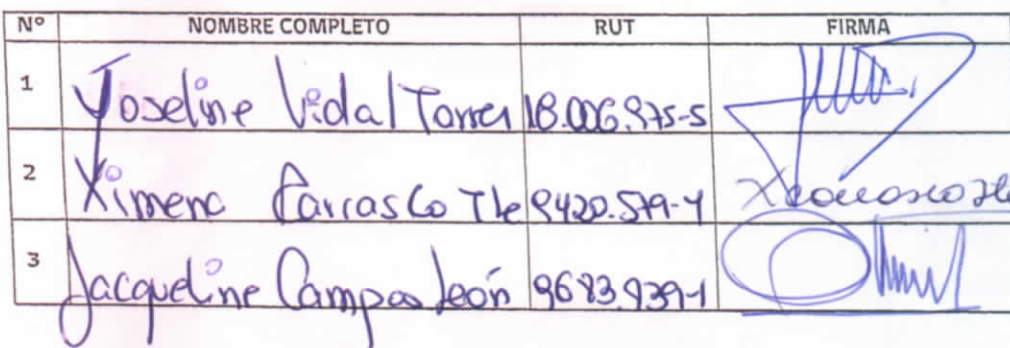 Nº NOMBRE COMPLETO RUT FIRMA
1 Yoseline Vidal Torres 18.006.975-5
2 Ximena Carrasco 9420.579-4
3 Jacqueline Campos León 9683.939-1